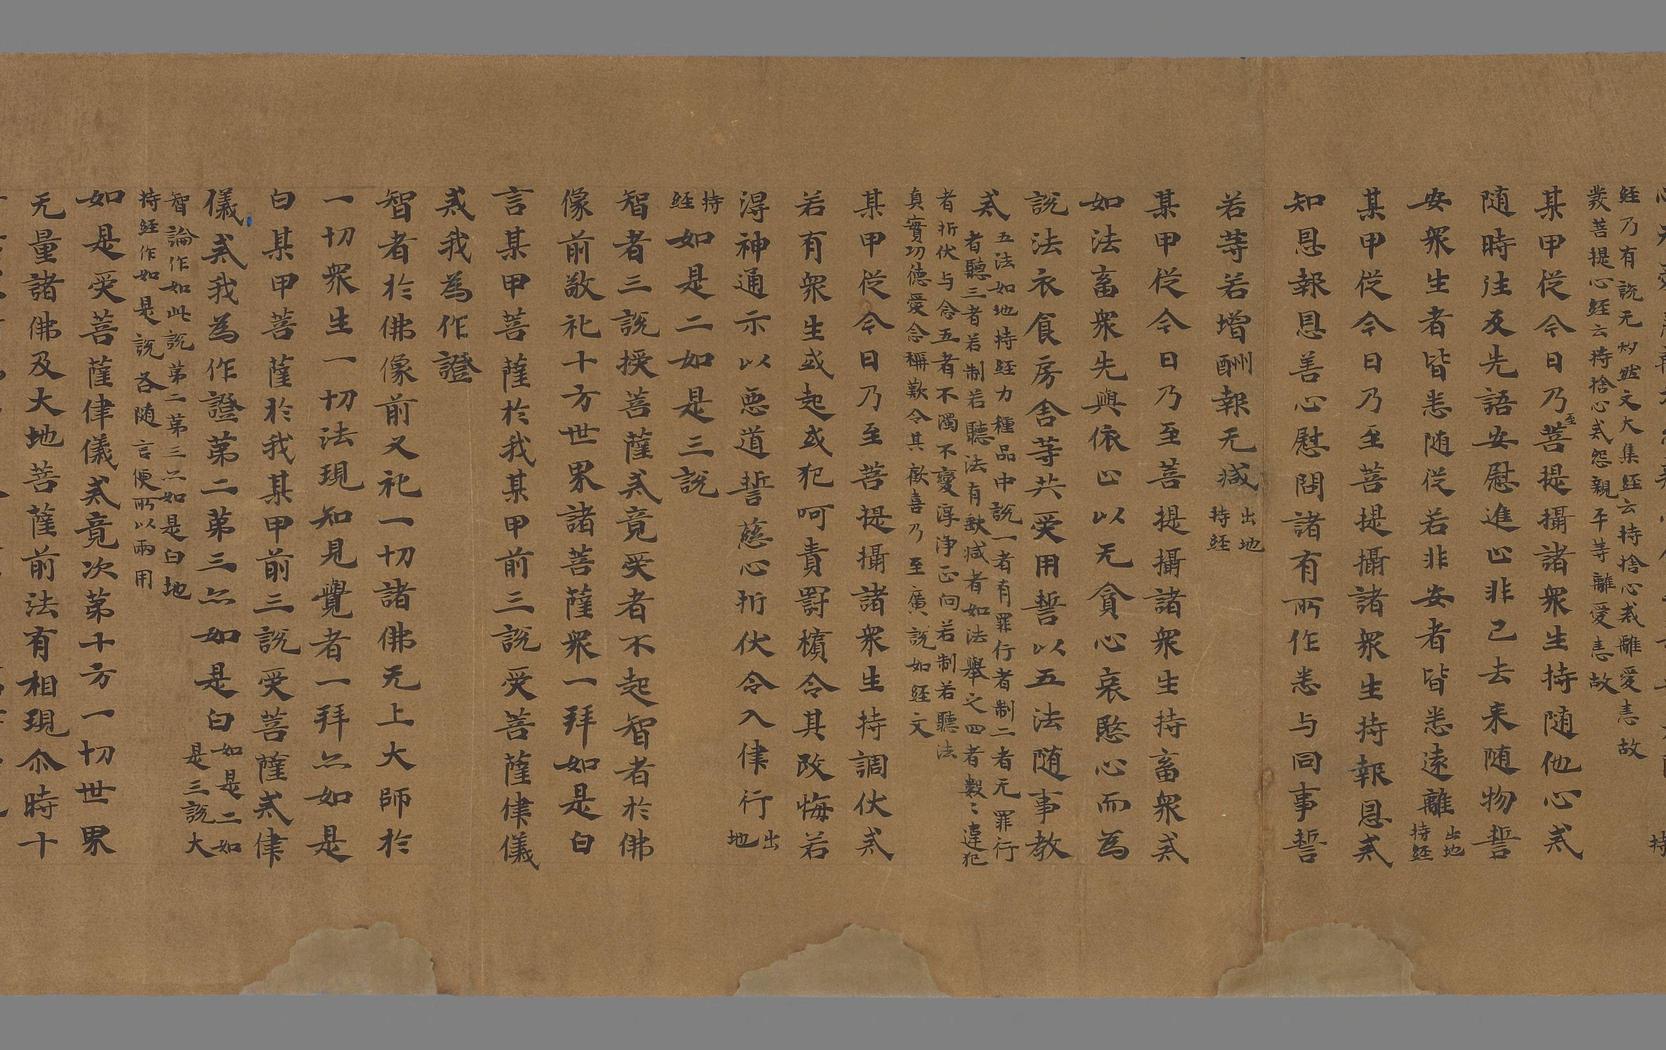 經乃有説无妙然文大集經云持捨心戒離愛恚故
羙菩提心經云持捨心戒怨親平等離愛恚故
某甲従今日乃至菩提攝諸衆生持随他心戒
随時往反先語安慰進止非己去来随物誓
安衆生者皆悉随従若非安者皆悉遠離出地持經
某甲従今日乃至菩提攝諸衆生持報恩戒
知恩報恩善心慰問諸有所作悉与同事誓
若等若增酬報无减出地持經
某甲従今日乃至菩提攝諸衆生持畜衆戒
如法畜衆先與依止以无貪心哀愍心而為
説法衣食房舍等共受用誓以五法随事教
戒五法如地持經力種品中説一者有罪行者制二者无罪行
者聽三者若制若聽法有缺减者如法舉之四者數〻違犯
者折伏与念五者不濁不變淳淨正向若制若聽法
真實功徳愛念稱歎令其歡喜乃至廣説如經文
某甲従今日乃至菩提攝諸衆生持調伏戒
若有衆生或起或犯呵責罸擯令其改悔若
得神通示以悪道誓慈心折伏令入律行出地
持經如是二如是三説
智者三説授菩薩戒竟受者不起智者於佛
像前敬礼十方世界諸菩薩衆一拜如是白
言某甲菩薩於我某甲前三説受菩薩律儀
戒我為作證
智者於佛像前又礼一切諸佛无上大師於
一切衆生一切法現知見覺者一拜亦如是
白某甲菩薩於我某甲前三説受菩薩戒律
儀戒我為作證第二第三亦如是白如是二如是三説大
智論作如此説第二第三亦如是白地
持經作如是説各随言便所以兩用
如是受菩薩律儀戒竟次第十方一切世界
无量諸佛及大地菩薩前法有相現尒時十